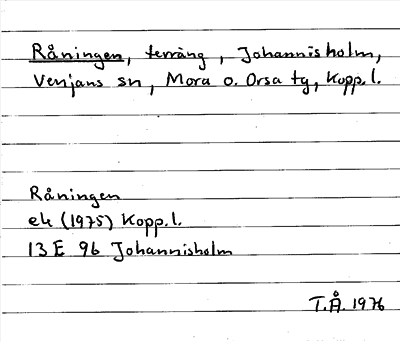 Råningen, terräng, Johannisholm,
Venjans sn, Mora o. Orsa tg, Kopp. l.
Råningen
ek (1975) Kopp. l.
13 E 9b Johannisholm
T.Å. 1976